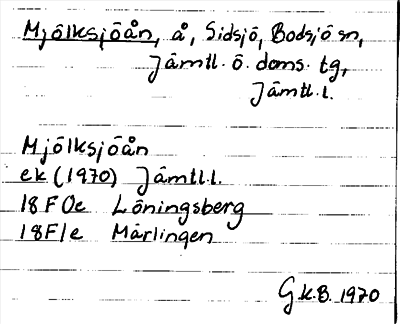 Mjölksjöån, å, Sidsjö, Bodsjö sn,
Jämtl. ö. doms. tg,
Jämtl. l.
Mjölksjöån
ek (1970) Jämtl l.
18 F 0e Löningsberg
18 F 1e Mårlingen
G.K.B. 1970